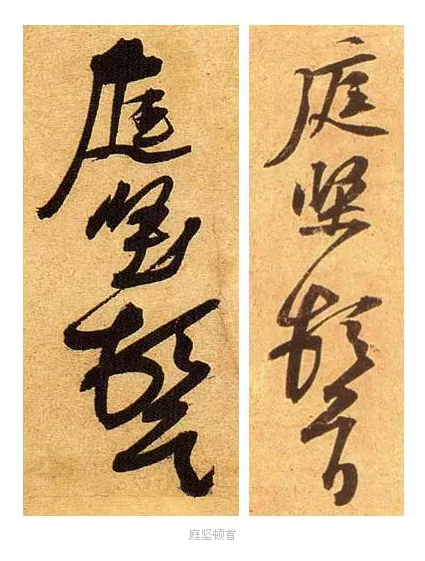 庭坚顿首
庭坚顿首
庭坚顿首